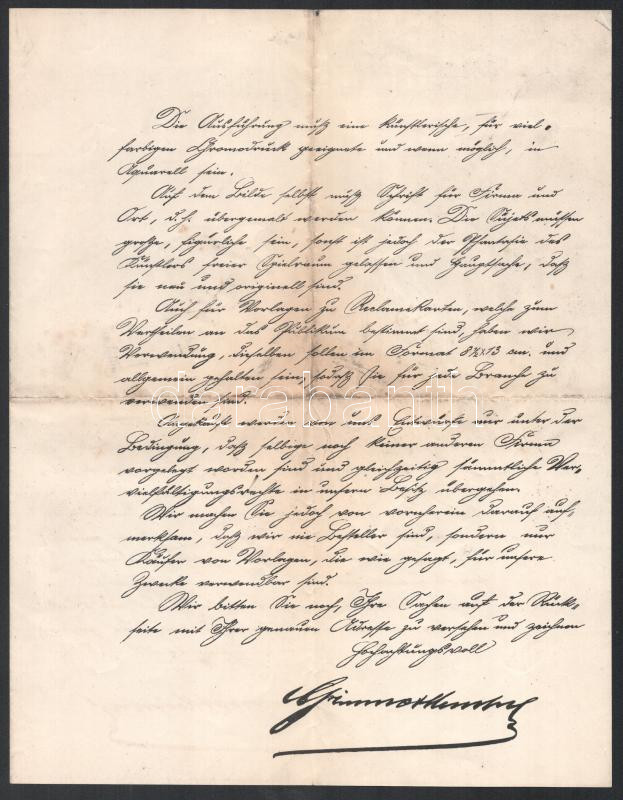 Die Ausführung muß eine künstlerische, für viel-
farbigen Chromodruck geeignete und wenn möglich, in
Aquarell sein.
Auf dem Bilde selbst muß Schrift für Firma und
Ort, d.h. übergemalt werden können. Die Sujets müssen
große, figürliche sein, sonst ist jedoch der Phantasie des
Künstlers freier Spielraum gelassen und Hauptsache, daß
sie neu und originell sind.
Auch für Vorlagen zu Reclamekarten, welche zum
Vertheilen an das Publikum bestimmt sind, haben wir
Verwendung, dieselben sollen im Format 8½x13 cm. und
allgemein gehalten sein, daß sie für jede Branche zu
verwenden sind.
Angekauft werden von uns Entwürfe nur unter der
Bedingung, daß selbige noch keiner anderen Firma
vorgelegt worden sind und gleichzeitig sämmtliche Ver-
vielfältigungsrechte in unsern Besitz übergehen.
Wir machen Sie jedoch von vornherein darauf auf-
merksam, daß wir nie Besteller sind, sondern nur
Käufer von Vorlagen, die wie gesagt, für unsere
Zwecke verwendbar sind.
Wir bitten Sie noch, Ihre Sachen auf der Rück-
seite mit Ihrer genauen Adresse zu versehen und zeichnen
Hochachtungsvoll
darabanth